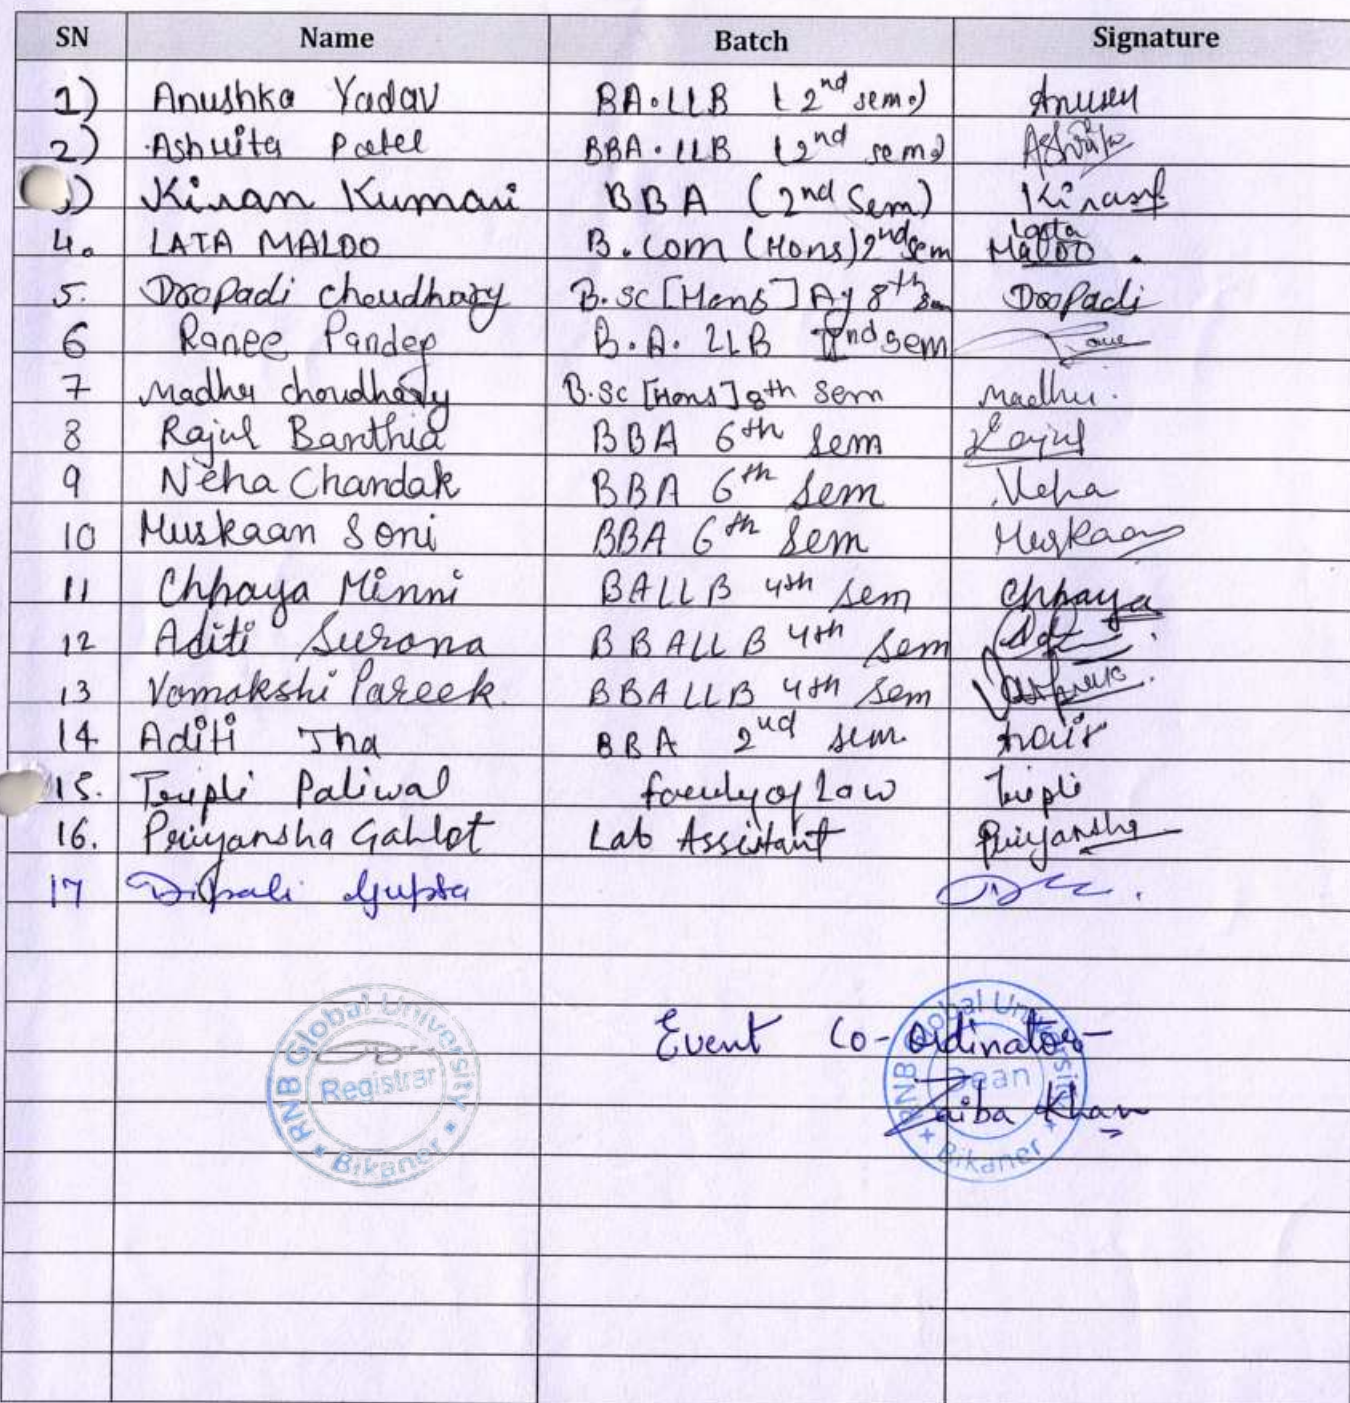 SN Name Batch Signature
1) Anushka Yadav BA.LLB (2nd sem.)
2) Ashvita Patel BBA.LLB (2nd sem) Ashvita
3) Kiran Kumari BBA (2nd Sem) Kiran
4. LATA MALOO B.Com (Hons) 2nd sem Lata Maloo.
5. Dropadi choudhary B.Sc [Hons] Ag 8th Sem Dropadi
6 Ranee Pandep B.A. LLB IInd sem
7 Madhu choudhary B.Sc [Hons] 8th Sem Madhu.
8 Rajul Banthia BBA 6th Sem Rajul
9 Neha Chandak BBA 6th Sem Neha
10 Muskaan Soni BBA 6th Sem Muskaan
11 Chhaya Minni BALLB 4th Sem Chhaya
12 Aditi Surana BBALLB 4th Sem
13 Vamakshi Pareek BBALLB 4th Sem
14 Aditi Jha BBA 2nd sem.
15. Tripti Paliwal faculty of Law Tripti
16. Priyansha Gahlot Lab Assistant Priyansha
17 Dipali Gupta
RNB Global University
Registrar
Bikaner
Event Co-ordinator
RNB Global University
Dean
Zaiba Khan
Bikaner